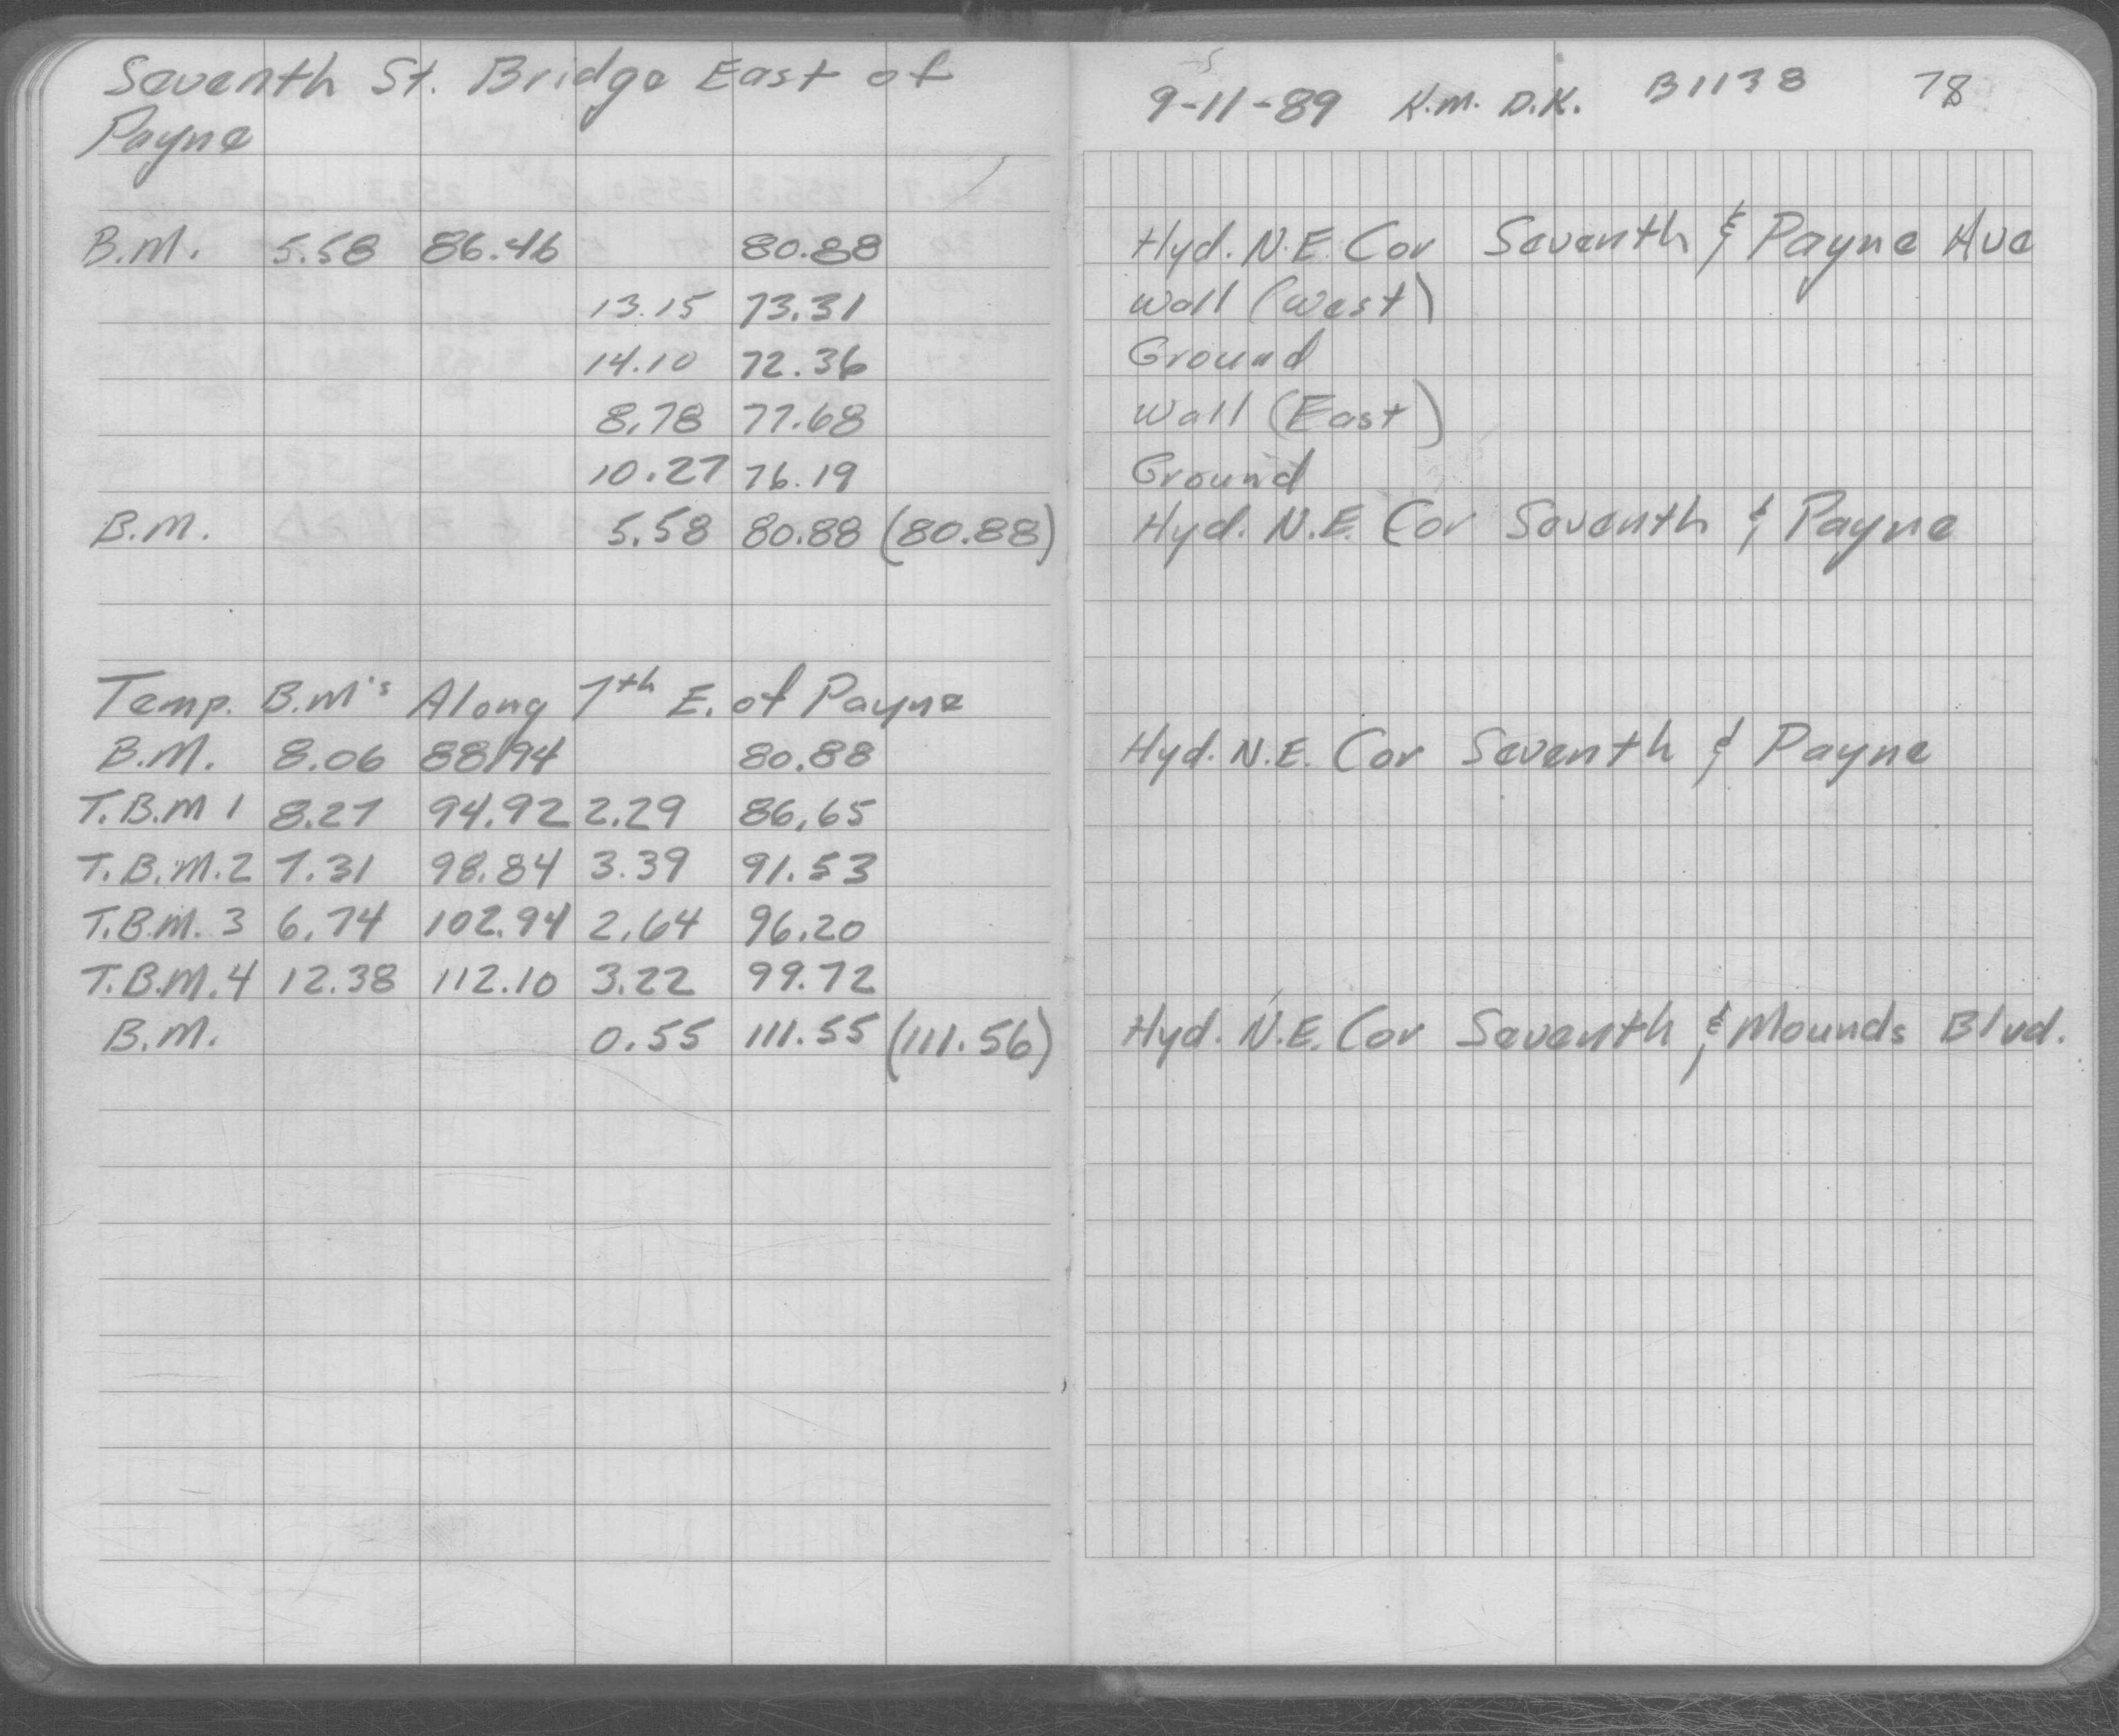 Seventh St. Bridge East of
Payne
9-11-89 K.M. D.K. B1138 78
B.M. 5.58 86.46 80.88 Hyd. N.E. Cor Seventh & Payne Ave
13.15 73.31 Wall (West)
14.10 72.36 Ground
8.78 77.68 Wall (East)
10.27 76.19 Ground
B.M. 5.58 80.88 (80.88) Hyd. N.E. Cor Seventh & Payne
Temp. B.M's Along 7th E. of Payne
B.M. 8.06 88.94 80.88 Hyd. N.E. Cor Seventh & Payne
T.B.M 1 8.27 94.92 2.29 86.65
T.B.M.2 7.31 98.84 3.39 91.53
T.B.M. 3 6.74 102.94 2.64 96.20
T.B.M.4 12.38 112.10 3.22 99.72
B.M. 0.55 111.55 (111.56) Hyd. N.E. Cor Seventh & Mounds Blvd.